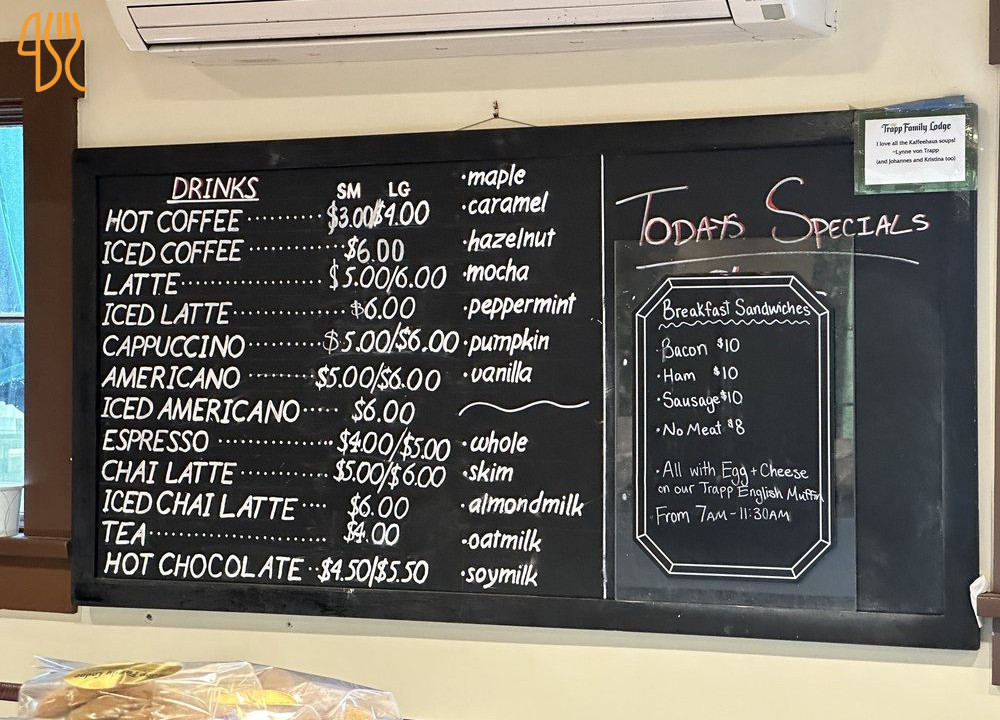 DRINKS SM LG
HOT COFFEE ............ $3.00/$4.00
ICED COFFEE ............ $6.00
LATTE .................... $5.00/6.00
ICED LATTE .............. $6.00
CAPPUCCINO ........... $5.00/$6.00
AMERICANO ......... $5.00/$6.00
ICED AMERICANO ..... $6.00
ESPRESSO ............... $4.00/$5.00
CHAI LATTE ............ $5.00/$6.00
ICED CHAI LATTE .... $6.00
TEA ........................ $4.00
HOT CHOCOLATE .. $4.50/$5.50
·maple
·caramel
·hazelnut
·mocha
·peppermint
·pumpkin
·vanilla
·whole
·skim
·almondmilk
·oatmilk
·soymilk
TODAYS SPECIALS
Breakfast Sandwiches
·Bacon $10
·Ham $10
·Sausage $10
·No Meat $8
·All with Egg + Cheese
on our Trapp English Muffin
From 7AM-11:30AM
Trapp Family Lodge
I love all the Kaffeehaus soups!
~Lynne von Trapp
(and Johannes and Kristina too)